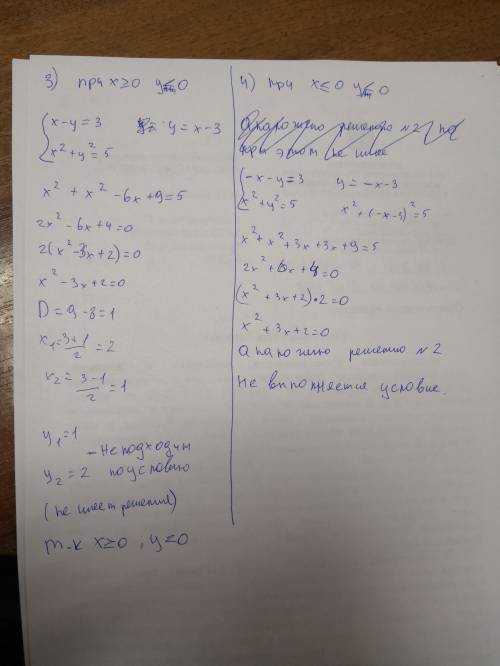 3) при x≥0 y≤0
{x-y=3 y=x-3
x²+y²=5
x²+x²-6x+9=5
2x²-6x+4=0
2(x²-3x+2)=0
x²-3x+2=0
D=9-8=1
x₁=3+1/2=2
x₂=3-1/2=1
y₁=1
- Не подходит
y₂=2 по условию
(не имеет решения)
т.к x≥0; y≤0
4) при x≤0 y≤0
{-x-y=3 y=-x-3
x²+y²=5 x²+(-x-3)²=5
x²+x²+3x+3x+9=5
2x²+6x+4=0
(x²+3x+2)•2=0
x²+3x+2=0
Аналогично решению №2
Не выполняется условие.